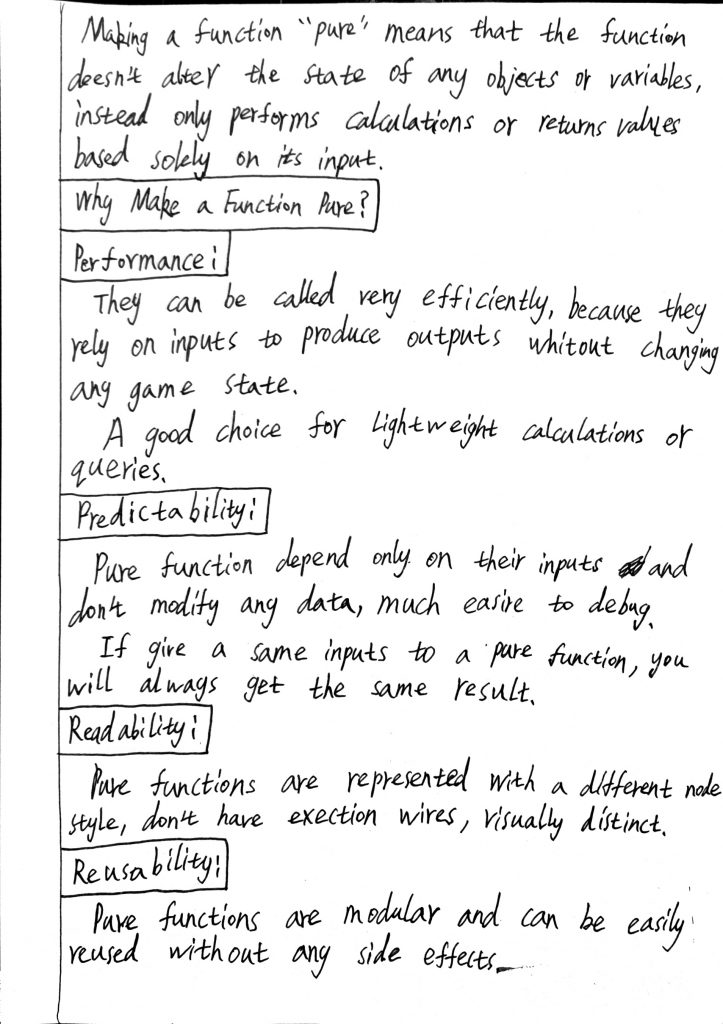 Making a function "pure" means that the function
deesn't alter the state of any objects or variables,
instead only performs calculations or returns values
based solely on its input.
Why Make a Function Pure?
Performance:
They can be called very efficiently, because they
rely on inputs to produce outputs whitout changing
any game state.
A good choice for lightweight calculations or
queries.
Predictability:
Pure function depend only on their inputs and
don't modify any data, much easire to debug.
If give a same inputs to a pure function, you
will always get the same result.
Readability:
Pure functions are represented with a different node
style, don't have exection wires, visually distinct.
Reusability:
Pure functions are modular and can be easily
reused without any side effects.